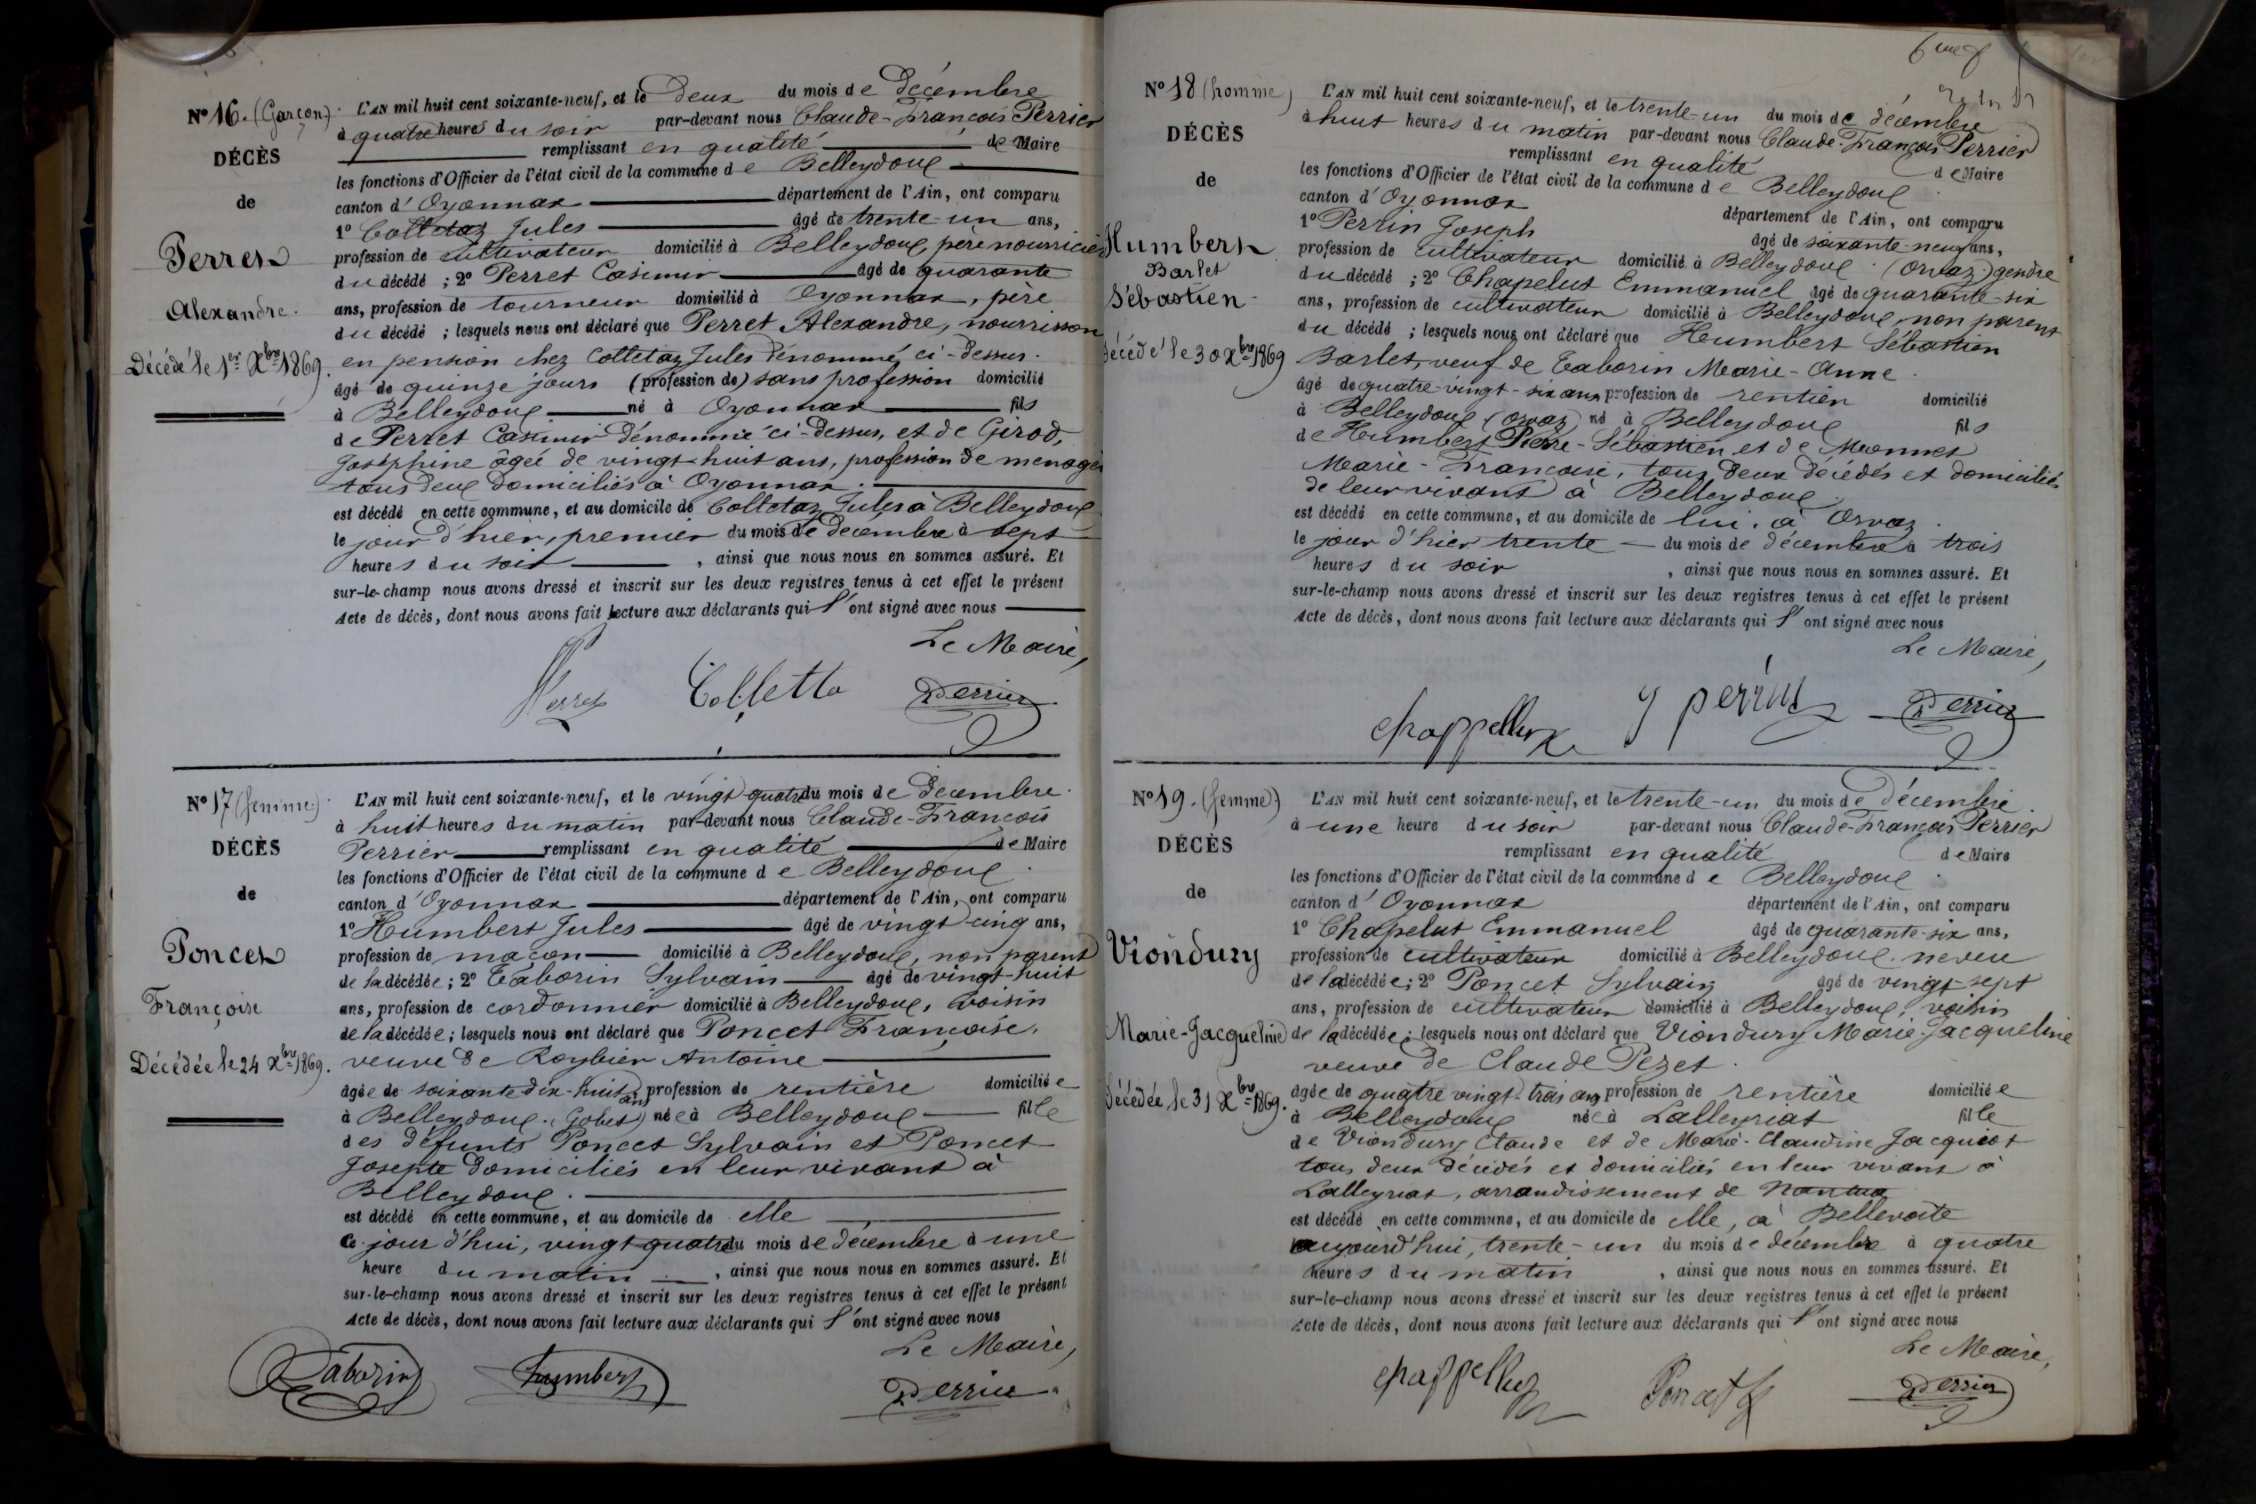 Nº 16. (Garçon).
DÉCÈS
de
Perret
Alexandre.
Décédé le 1er Xbre 1869.
L'AN mil huit cent soixante-neuf, et le deux du mois de Décembre
à quatre heures du soir par-devant nous Claude-François Perrier
remplissant en qualité de Maire
les fonctions d'Officier de l'état civil de la commune de Belleydoux
canton d'Oyonnax département de l'Ain, ont comparu
1º Colletaz Jules âgé de trente-un ans,
profession de cultivateur domicilié à Belleydoux, père nourricier
du décédé ; 2º Perret Casimir âgé de quarante
ans, profession de tourneur domicilié à Oyonnax, père
du décédé ; lesquels nous ont déclaré que Perret Alexandre, nourrisson
en pension chez Colletaz Jules dénommé ci-dessus.
âgé de quinze jours (profession de) sans profession domicilié
à Belleydoux né à Oyonnax fils
de Perret Casimir dénommé ci-dessus, et de Girod,
Joséphine âgée de vingt-huit ans, profession de menagère
tous deux domiciliés à Oyonnax.
est décédé en cette commune, et au domicile de Colletaz Jules à Belleydoux
le jour d'hier, premier du mois de décembre à sept
heures du soir , ainsi que nous nous en sommes assuré. Et
sur-le-champ nous avons dressé et inscrit sur les deux registres tenus à cet effet le présent
Acte de décès, dont nous avons fait lecture aux déclarants qui l'ont signé avec nous
Le Maire,
Perret Colletta Perrier
Nº 17 (femme).
DÉCÈS
de
Poncet
Françoise
Décédée le 24 Xbre 1869.
L'AN mil huit cent soixante-neuf, et le vingt-quatre du mois de Décembre.
à huit heures du matin par-devant nous Claude-François
Perrier remplissant en qualité de Maire
les fonctions d'Officier de l'état civil de la commune de Belleydoux.
canton d'Oyonnax département de l'Ain, ont comparu
1º Humbert Jules âgé de vingt-cinq ans,
profession de maçon domicilié à Belleydoux, non parent
de la décédée ; 2º Taborin Sylvain âgé de vingt-huit
ans, profession de cordonnier domicilié à Belleydoux, voisin
de la décédée ; lesquels nous ont déclaré que Poncet Françoise,
veuve de Roybier Antoine
âgée de soixante dix-huit ans profession de rentière domiciliée
à Belleydoux. (Gobet) née à Belleydoux fille
des défunts Poncet Sylvain et Poncet
Josephte domiciliés en leur vivant à
Belleydoux.
est décédé en cette commune, et au domicile de elle
ce jour d'hui, vingt-quatre du mois de décembre à une
heure du matin , ainsi que nous nous en sommes assuré. Et
sur-le-champ nous avons dressé et inscrit sur les deux registres tenus à cet effet le présent
Acte de décès, dont nous avons fait lecture aux déclarants qui l'ont signé avec nous
Le Maire,
Taborin humbert Perrier
Nº 18 (homme)
DÉCÈS
de
Humbert
Barlet
Sébastien
Décédé le 30 Xbre 1869
L'AN mil huit cent soixante-neuf, et le trente-un du mois de décembre
à huit heures du matin par-devant nous Claude-François Perrier
remplissant en qualité de Maire
les fonctions d'Officier de l'état civil de la commune de Belleydoux.
canton d'Oyonnax département de l'Ain, ont comparu
1º Perrin Joseph âgé de soixante-neuf ans,
profession de cultivateur domicilié à Belleydoux. (Orvaz.) gendre
du décédé ; 2º Chapelut Emmanuel âgé de quarante-six
ans, profession de cultivateur domicilié à Belleydoux, non parent
du décédé ; lesquels nous ont déclaré que Humbert Sébastien
Barlet, veuf de Taborin Marie-Anne.
âgé de quatre-vingt-six ans profession de rentier domicilié
à Belleydoux (Orvaz) né à Belleydoux fils
de Humbert Pierre-Sébastien et de Meonnet
Marie-Françoise, tous deux décédés et domiciliés
de leur vivant à Belleydoux.
est décédé en cette commune, et au domicile de lui, à Orvaz.
le jour d'hier trente du mois de décembre à trois
heures du soir , ainsi que nous nous en sommes assuré. Et
sur-le-champ nous avons dressé et inscrit sur les deux registres tenus à cet effet le présent
Acte de décès, dont nous avons fait lecture aux déclarants qui l'ont signé avec nous
Le Maire,
chappellux J perrin Perrier
Nº 19. (femme)
DÉCÈS
de
Viondury
Marie-Jacqueline
Décédée le 31 Xbre 1869.
L'AN mil huit cent soixante-neuf, et le trente-un du mois de décembre.
à une heure du soir par-devant nous Claude-François Perrier
remplissant en qualité de Maire
les fonctions d'Officier de l'état civil de la commune de Belleydoux.
canton d'Oyonnax département de l'Ain, ont comparu
1º Chapelut Emmanuel âgé de quarante-six ans,
profession de cultivateur domicilié à Belleydoux. neveu
de la décédée ; 2º Poncet Sylvain âgé de vingt-sept
ans, profession de cultivateur domicilié à Belleydoux, voisin
de la décédée ; lesquels nous ont déclaré que Viondury Marie-Jacqueline
veuve de Claude Pezet.
âgée de quatre vingt-trois ans profession de rentière domiciliée
à Belleydoux née à Lalleyriat fille
de Viondury Claude et de Marie-Claudine Jacquiot
tous deux décédés et domiciliés en leur vivant à
Lalleyriat, arrondissement de Nantua
est décédé en cette commune, et au domicile de elle, à Bellevoite
aujourd'hui, trente-un du mois de décembre à quatre
heures du matin , ainsi que nous nous en sommes assuré. Et
sur-le-champ nous avons dressé et inscrit sur les deux registres tenus à cet effet le présent
Acte de décès, dont nous avons fait lecture aux déclarants qui l'ont signé avec nous
Le Maire,
chappellux Poncet Perrier